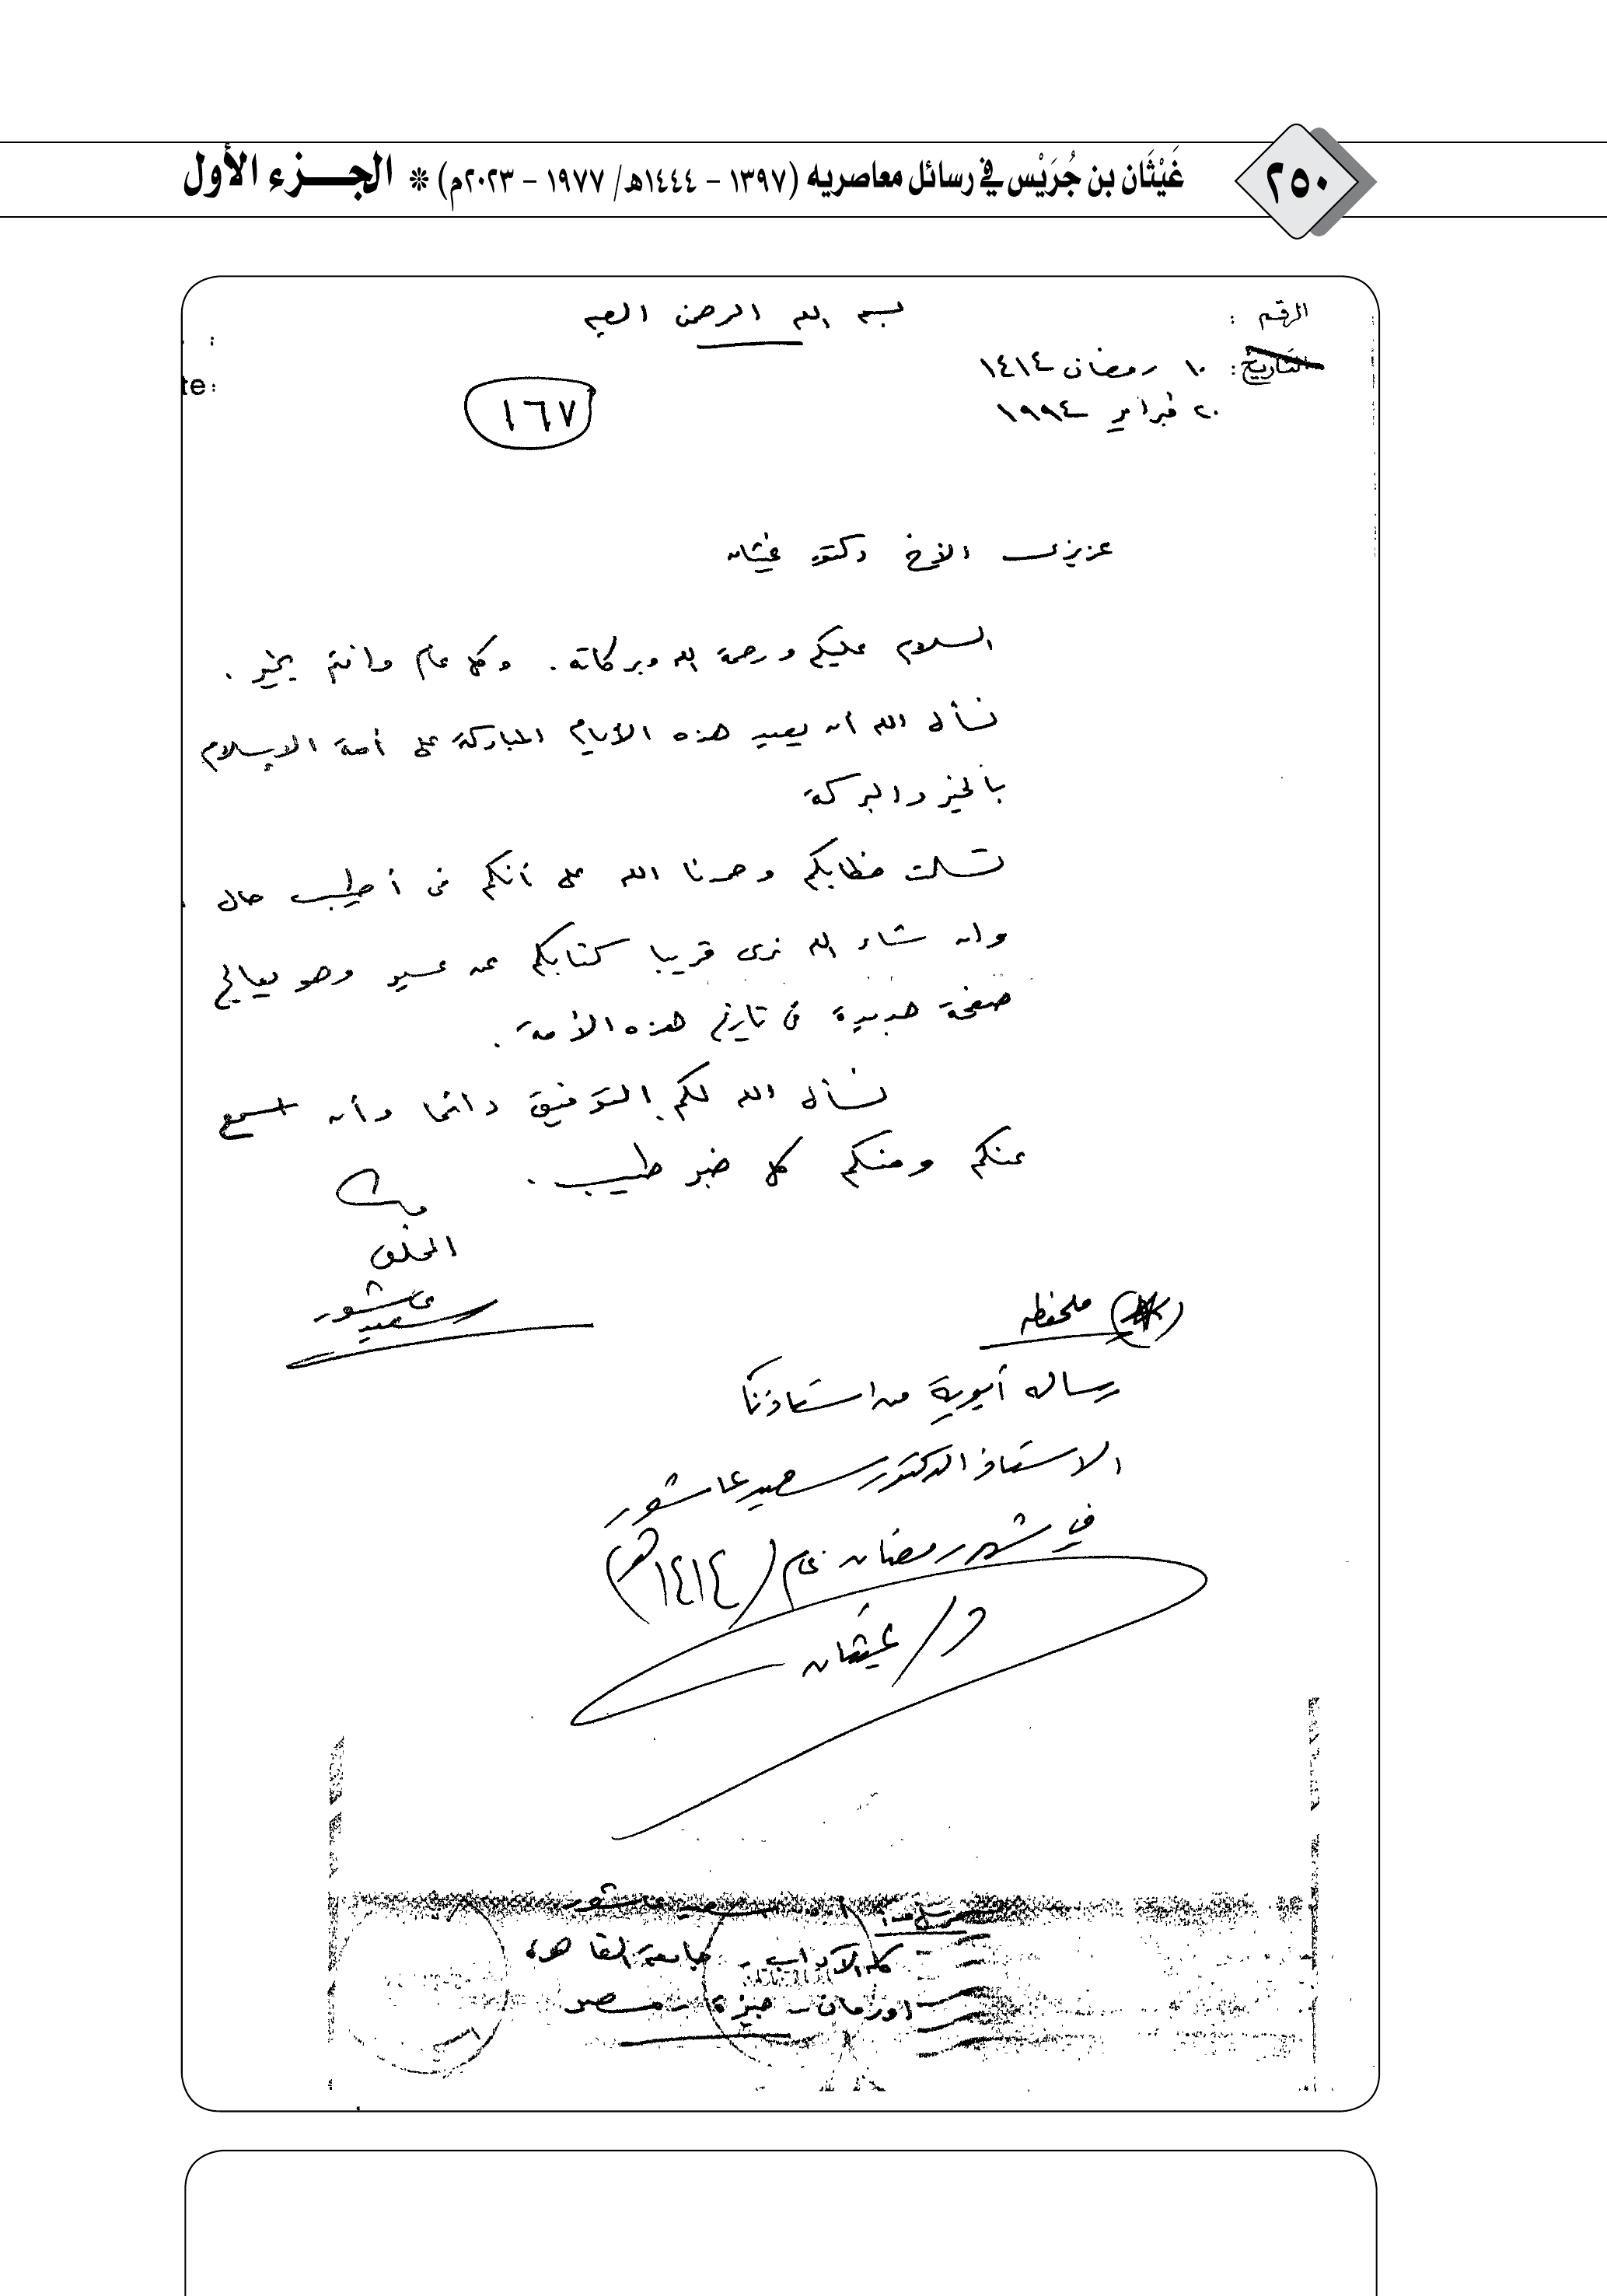 ٢٥٠
غَيْثَان بن جُرَيْس في رسائل معاصريه (١٣٩٧ - ١٤٤٤هـ/ ١٩٧٧ - ٢٠٢٣م) * الجزء الأول
بسم الله الرحمن الرحيم
الرقم :
التاريخ: ١٠ رمضان ١٤١٤
٢٠ فبراير ١٩٩٤
te:
١٦٧
عزيزى الأخ دكتور غيثان
السلام عليكم ورحمة الله وبركاته. وكل عام وانتم بخير.
نسأل الله أن يعيد هذه الأيام المباركة على أمة الإسلام
بالخير والبركة
تسلمت خطابكم وحمدنا الله على أنكم فى أطيب حال.
وان شاء الله نرى قريبا كتابكم عن عسير وهو يعالج
صفحة جديدة فى تاريخ هذه الأمة.
نسأل الله لكم التوفيق دائما وأن نسمع
عنكم ومنكم كل خبر طيب.
المخلص
سعيد عاشور
(*) ملحوظه
رساله أبوية من استاذنا
الاستاذ الدكتور سعيد عاشور
في شهر رمضان عام (١٤١٤هـ)
د/ غيثان
سعيد عاشور
كلية الآداب - جامعة القاهرة
اورمان - جيزة - مصر